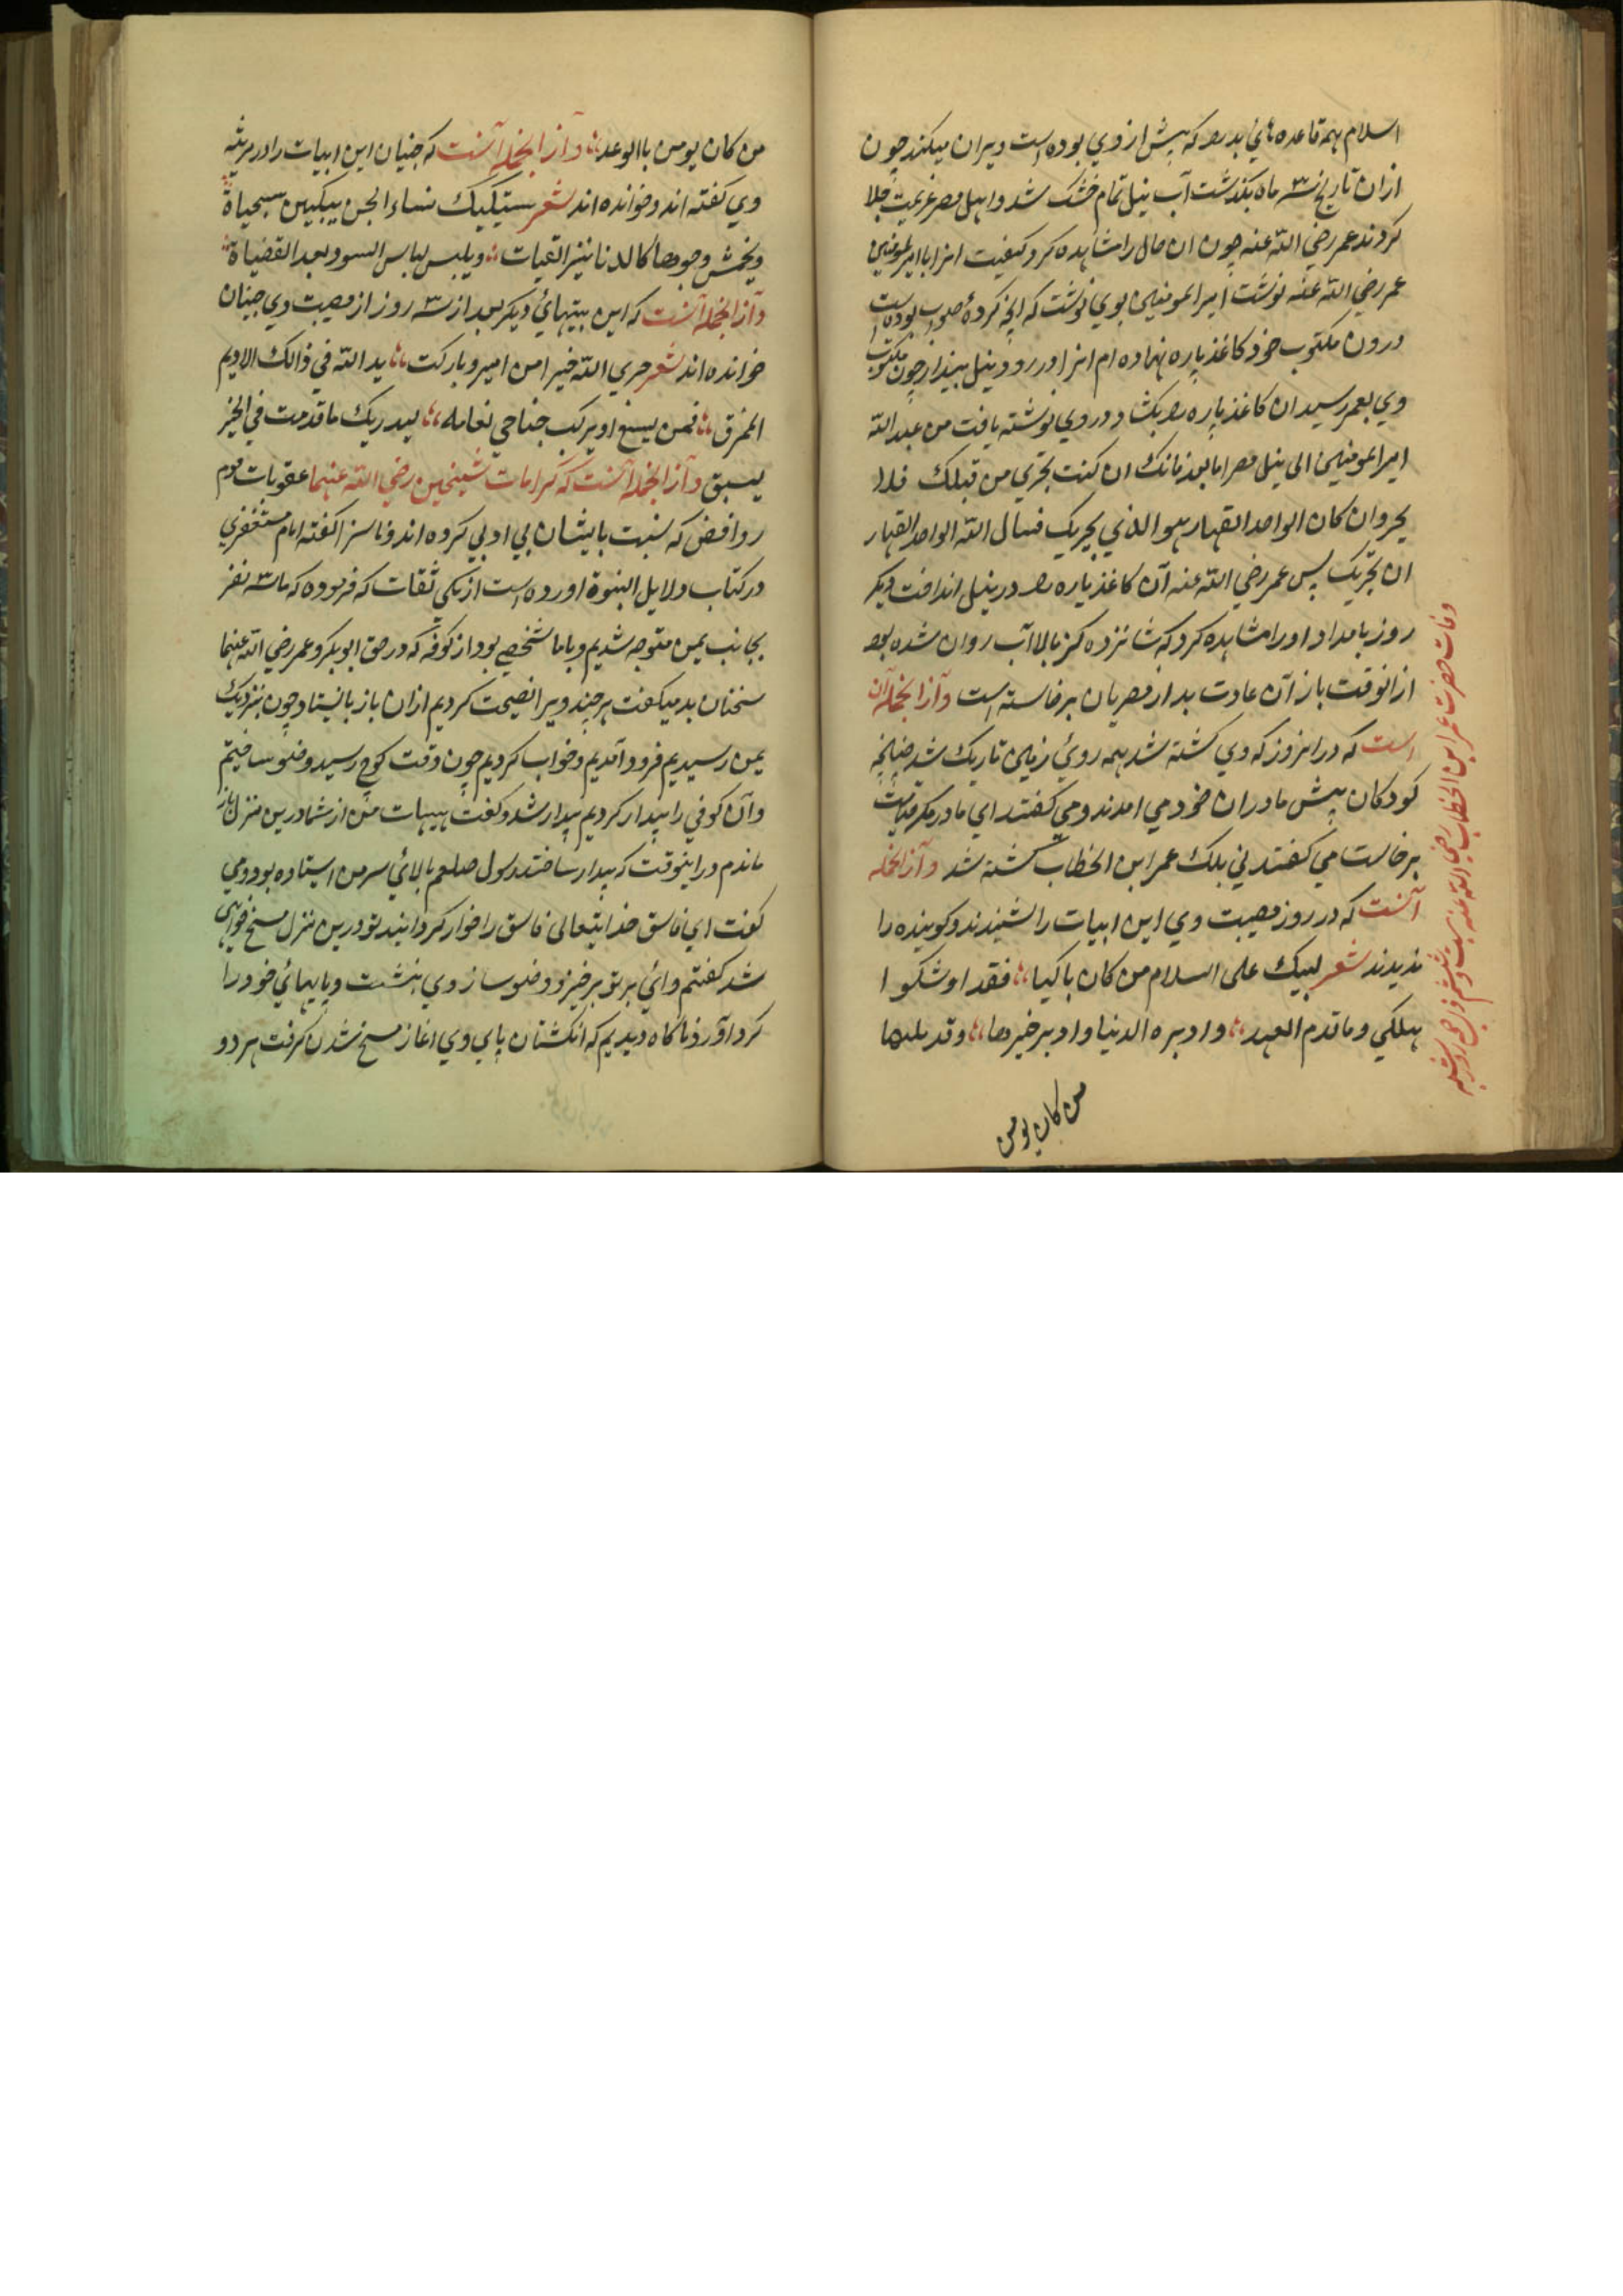 اسلام همه قاعده هاي بد را که پیش از وي بوده است ویران میکند چون
ازان تاریخ سه ماه بگذشت آب نیل تمام خشک شد و اهل مصر عزیمت جلا
کردند عمر رضي الله عنه چون ان حال را مشاهده کرد کیفیت انرا باامیرالمومنین
عمر رضي الله عنه نوشت امیرالمومنین بوي نوشت که انچه کردهٔ صواب بوده است
درون مکتوب خود کاغذ پاره نهاده ام انرا در رود نیل بینداز چون مکتوب
وي بعمر رسید ان کاغذ پاره را بکشاد در وي نوشته یافت من عبدالله
امیرالمومنین الی نیل مصر اما بعد فانک ان کنت تجري من قبلک فلا
یجر وان کان الواحد القهار هو الذي یجریک فسال الله الواحد القهار
ان یجریک پس عمر رضي الله عنه آن کاغذ پاره را در نیل انداخت دیگر
روز بامداد اورا مشاهده کرد که شانزده گز بالا آب روان شده بود
ازانوقت باز آن عادت بد از مصریان برخاسته است وآزانجمله آن
است که دران روز که وي کشته شد همه روئ زمین تاریک شد چنانچه
کودکان پیش مادران خود مي امدند ومي کفتند اي مادر مکر قیامت
برخاست مي کفتند ني بلک عمر ابن الخطاب کشته شد وآزانجمله
آنست که در روز مصیبت وي این ابیات را شنیدند وکوینده را
ندیدند شعر لیبک علی السلام من کان باکیا فقد اوشکوا
هلکي وما قدم العهد وادبره الدنیا وادبر خیرها وقد ملها
من کان یومن
وفات حضرت عمر ابن الخطاب رضي الله عنه بیست وششم ذي
من کان یومن باالوعد وآزانجمله آنست که جنیان این ابیات را در مرثیه
وي کفته اند وخوانده اند شعر ستیکیک نساء الجن یبکین سجیاة
ویخمش وجوهها کالدنانیر النقیات ویلبس لباس السود بعد القضیاة
وآزانجمله آنست که این بیتهائ دیکر بعد از سه روز از مصیبت وي جنیان
خوانده اند شعر جري الله خیرا من امیر وبارکت ید الله في ذالک الادیم
الممزق فمن یسغ او یرکب جناحي نعامه لیدریک ما قدمت في الخیر
یسبق وآزانجمله آنست که کرامات شیخین رضي الله عنهما عقوبات قوم
روافض که نسبت بایشان بي ادبي کرده اند وناسزا کفته امام مستغفري
در کتاب دلایل النبوة اورده است از یکي ثقات که فرموده که ما سه نفر
بجانب یمن متوجه شدیم وباما شخصي بود از کوفه که در حق ابوبکر وعمر رضي الله عنهما
سخنان بد میکفت هر چند ویرا نصیحت کردیم ازان باز نایستاد چون نزدیک
یمن رسیدیم فرود آمدیم وخواب کردیم چون وقت کوچ رسید وضو ساختیم
وآن کوفي را بیدار کردیم بیدار شد وکفت هیهات من از شما درین منزل باز
ماندم دراینوقت که بیدار ساختند رسول صلعم بالائ سر من استاده بود ومي
کفت اي فاسق خدایتعالی فاسق را خوار کرداند تو درین منزل مسخ خواهي
شد کفتم وائ بر تو برخیز ووضو ساز وي بنشست وپایهائ خود را
کرد آورد ناکاه دیدیم که انکشتان پاي وي اغاز مسخ شدن کرفت هر دو